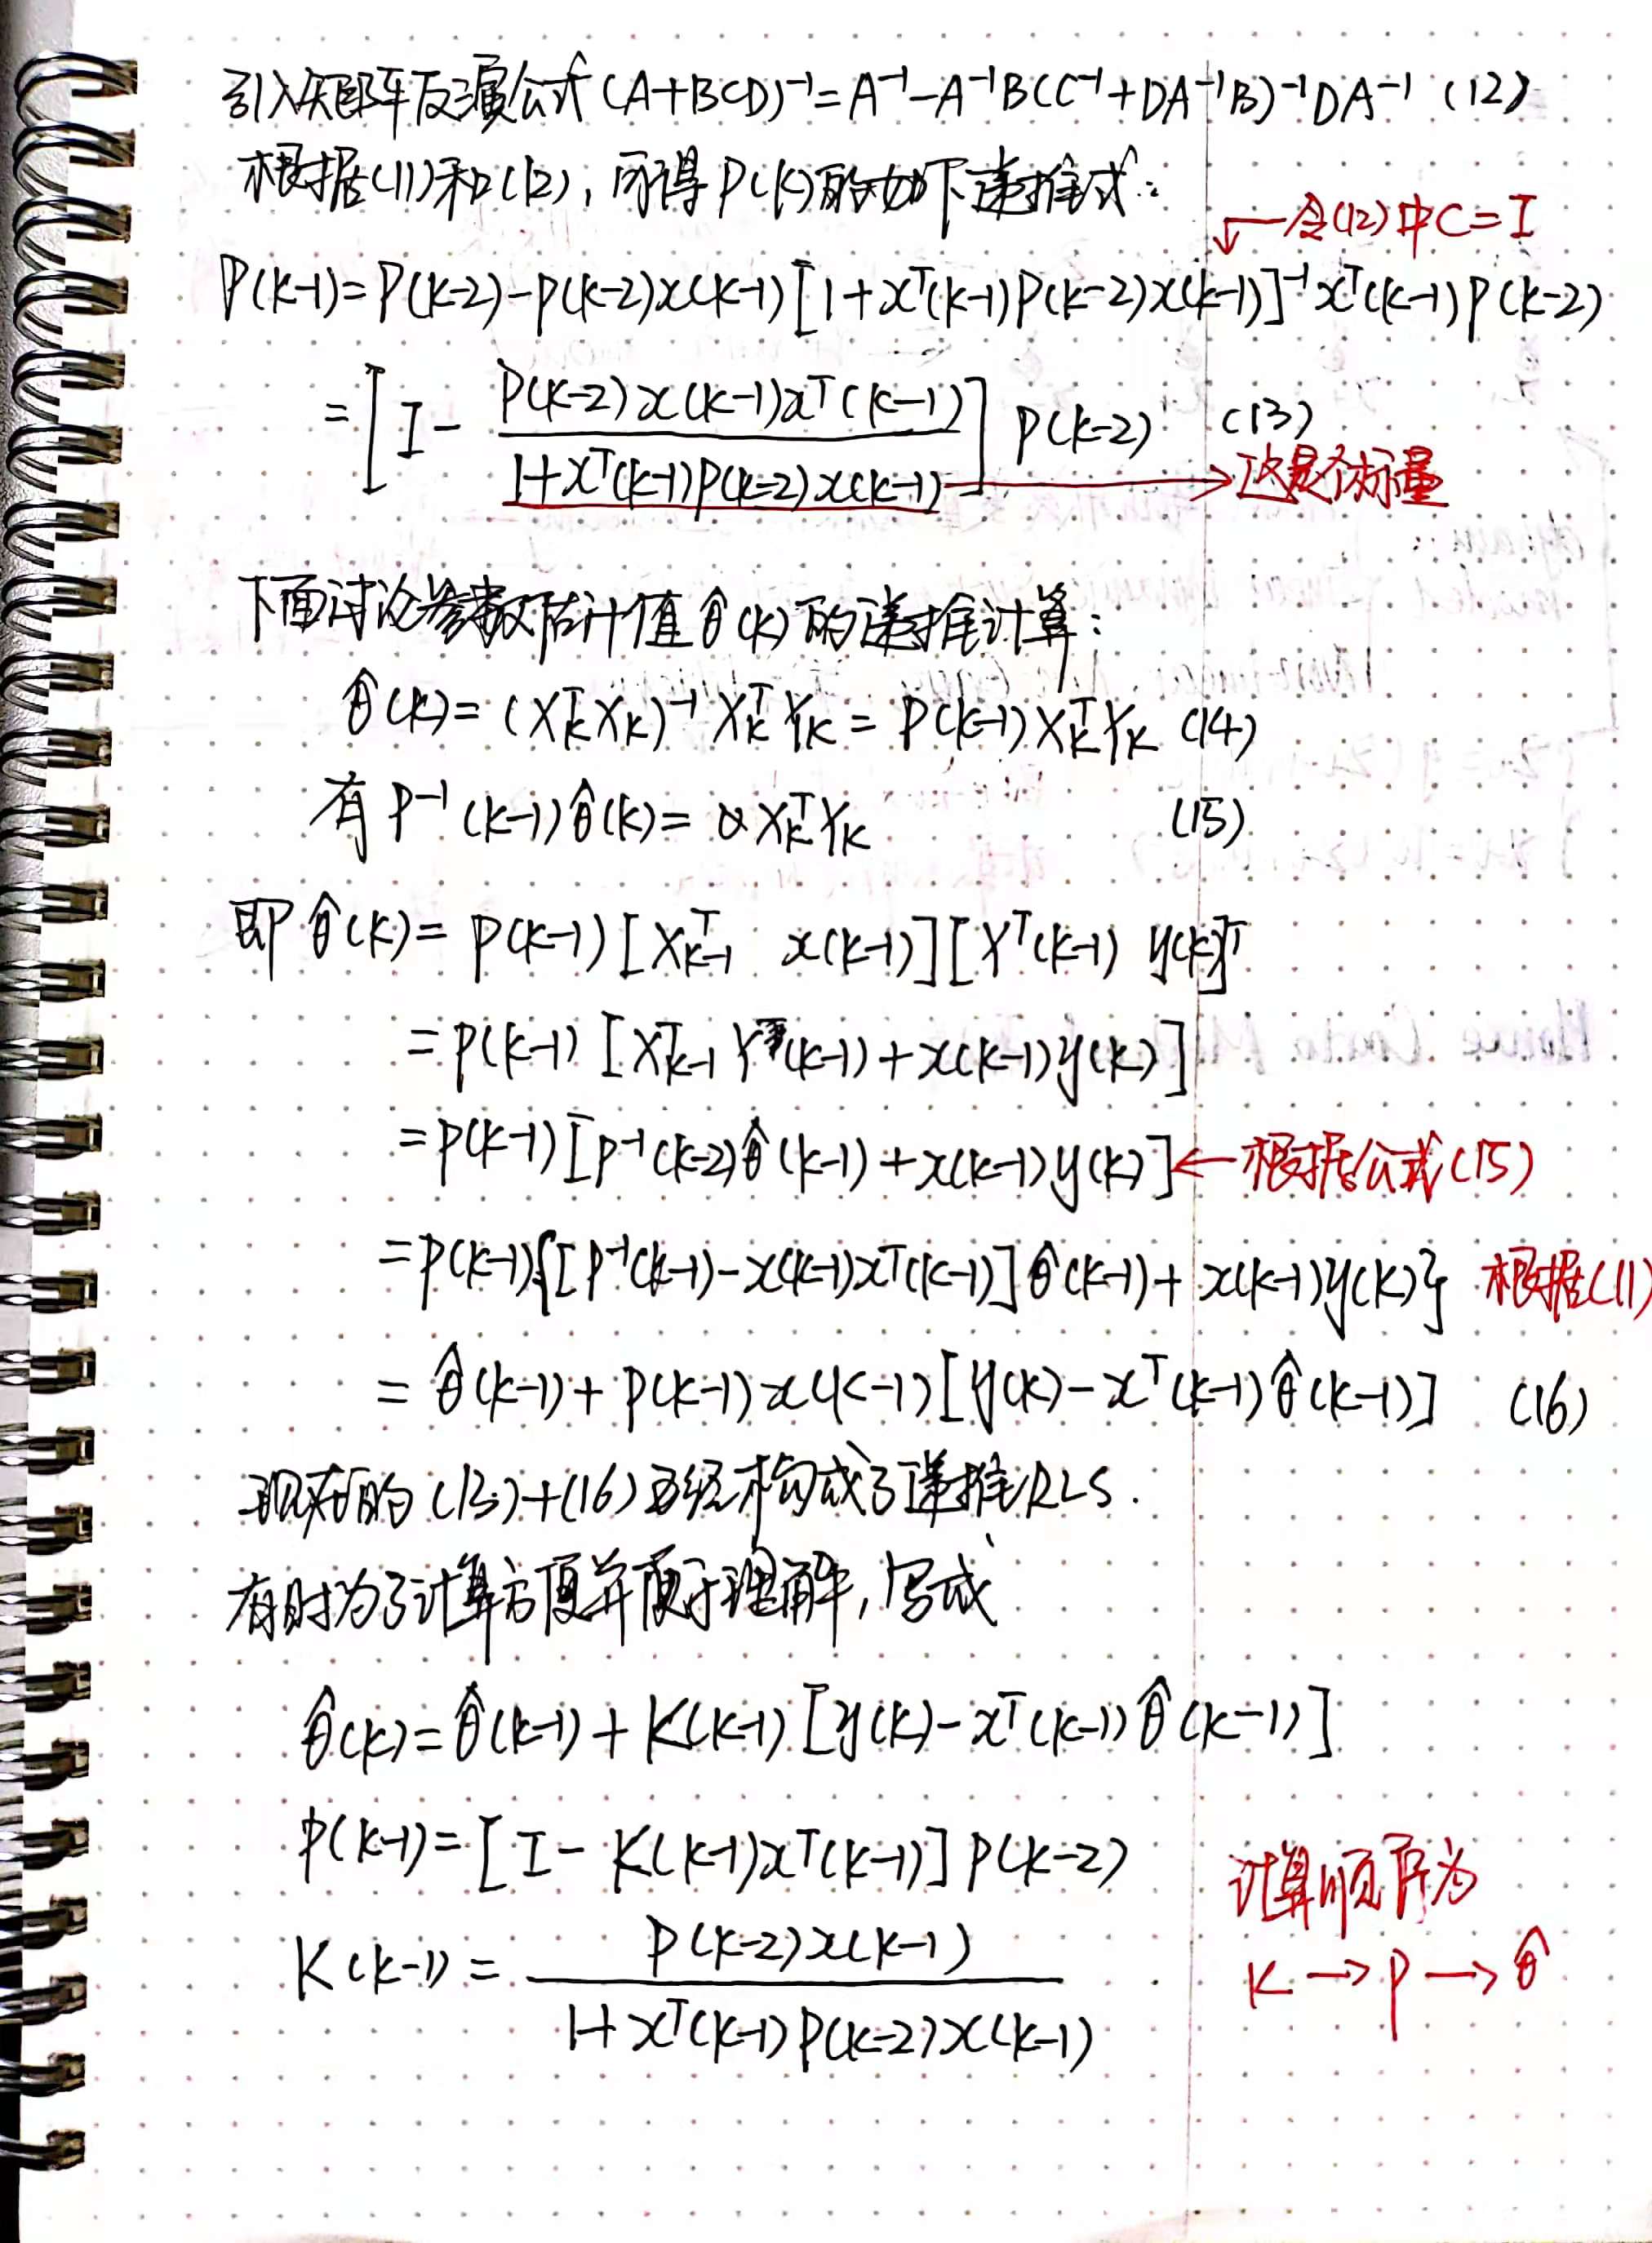 引入矩阵反演公式 (A+BCD)⁻¹=A⁻¹-A⁻¹B(C⁻¹+DA⁻¹B)⁻¹DA⁻¹ (12)
根据(11)和(12),可得P(k)的如下递推式:
←令(12)中C=I
P(k-1)=P(k-2)-P(k-2)x(k-1)[1+xᵀ(k-1)P(k-2)x(k-1)]⁻¹xᵀ(k-1)P(k-2)
=[I- P(k-2)x(k-1)xᵀ(k-1) / 1+xᵀ(k-1)P(k-2)x(k-1) ]P(k-2) (13)
→这是个标量
下面讨论参数估计值θ̂(k)的递推计算:
θ̂(k)=(XₖᵀXₖ)⁻¹XₖᵀYₖ=P(k-1)XₖᵀYₖ (14)
有P⁻¹(k-1)θ̂(k)=XₖᵀYₖ (15)
即θ̂(k)=P(k-1)[Xₖ₋₁ᵀ x(k-1)][Yᵀ(k-1) y(k)]ᵀ
=P(k-1)[Xₖ₋₁ᵀY(k-1)+x(k-1)y(k)]
=P(k-1)[P⁻¹(k-2)θ̂(k-1)+x(k-1)y(k)]←根据公式(15)
=P(k-1){[P⁻¹(k-1)-x(k-1)xᵀ(k-1)]θ̂(k-1)+x(k-1)y(k)} 根据(11)
=θ̂(k-1)+P(k-1)x(k-1)[y(k)-xᵀ(k-1)θ̂(k-1)] (16)
现在的(13)+(16)已经构成了递推RLS.
有时为了计算方便并便于理解,写成
θ̂(k)=θ̂(k-1)+K(k-1)[y(k)-xᵀ(k-1)θ̂(k-1)]
P(k-1)=[I-K(k-1)xᵀ(k-1)]P(k-2)
K(k-1)= P(k-2)x(k-1) / 1+xᵀ(k-1)P(k-2)x(k-1)
计算顺序为
K→P→θ̂